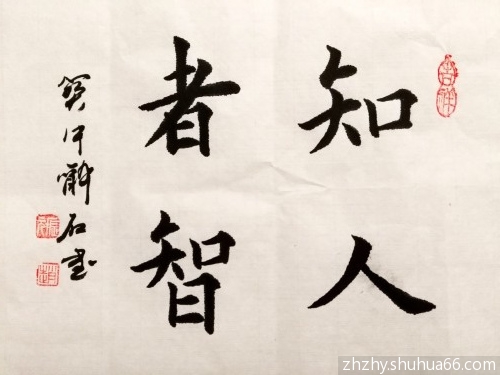 知人
者智
石书
zhzhy.shuhua66.com